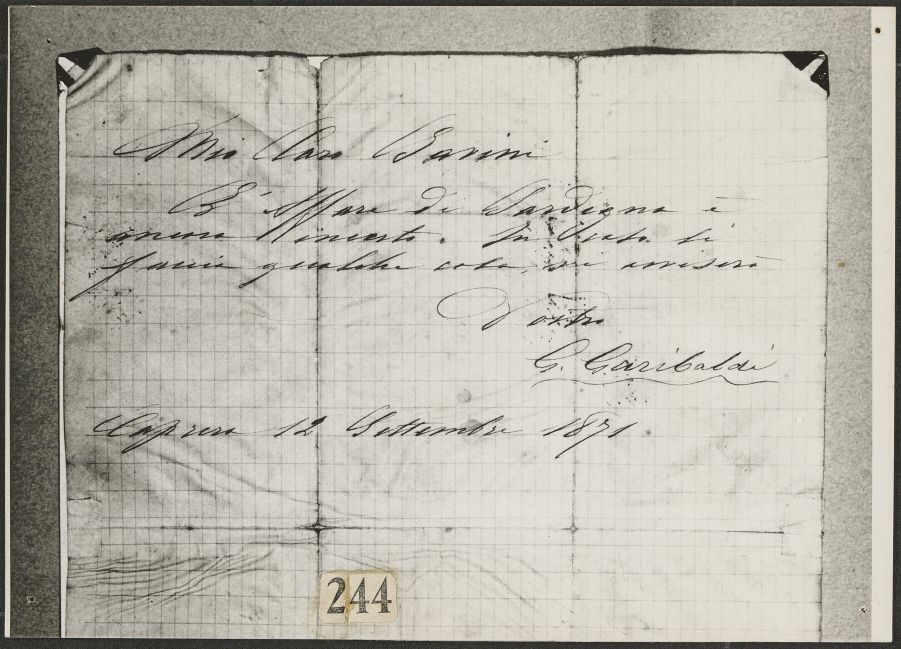 Mio Caro
L'Affare di Sardegna è
ancora incerto. Si
faccia qualche cosa, vi avviserò
Vostro
G. Garibaldi
Caprera 12 Settembre 1871
244